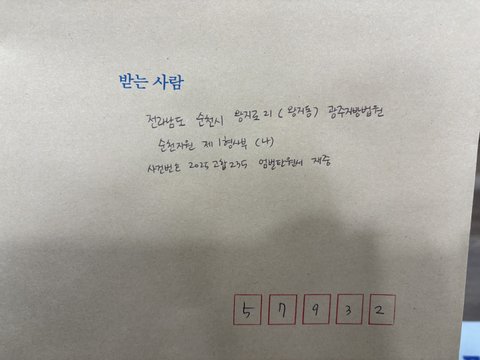 받는 사람
전라남도 순천시 왕지로 21 (왕지동) 광주지방법원
순천지원 제1형사부 (나)
사건번호 2025고합235 엄벌탄원서 재중
5 7 9 3 2